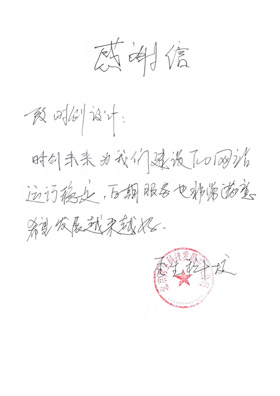 感谢信
致时创设计：
时创未来为我们建设的网站
运行稳定，后期服务也非常满意
希望发展越来越好.